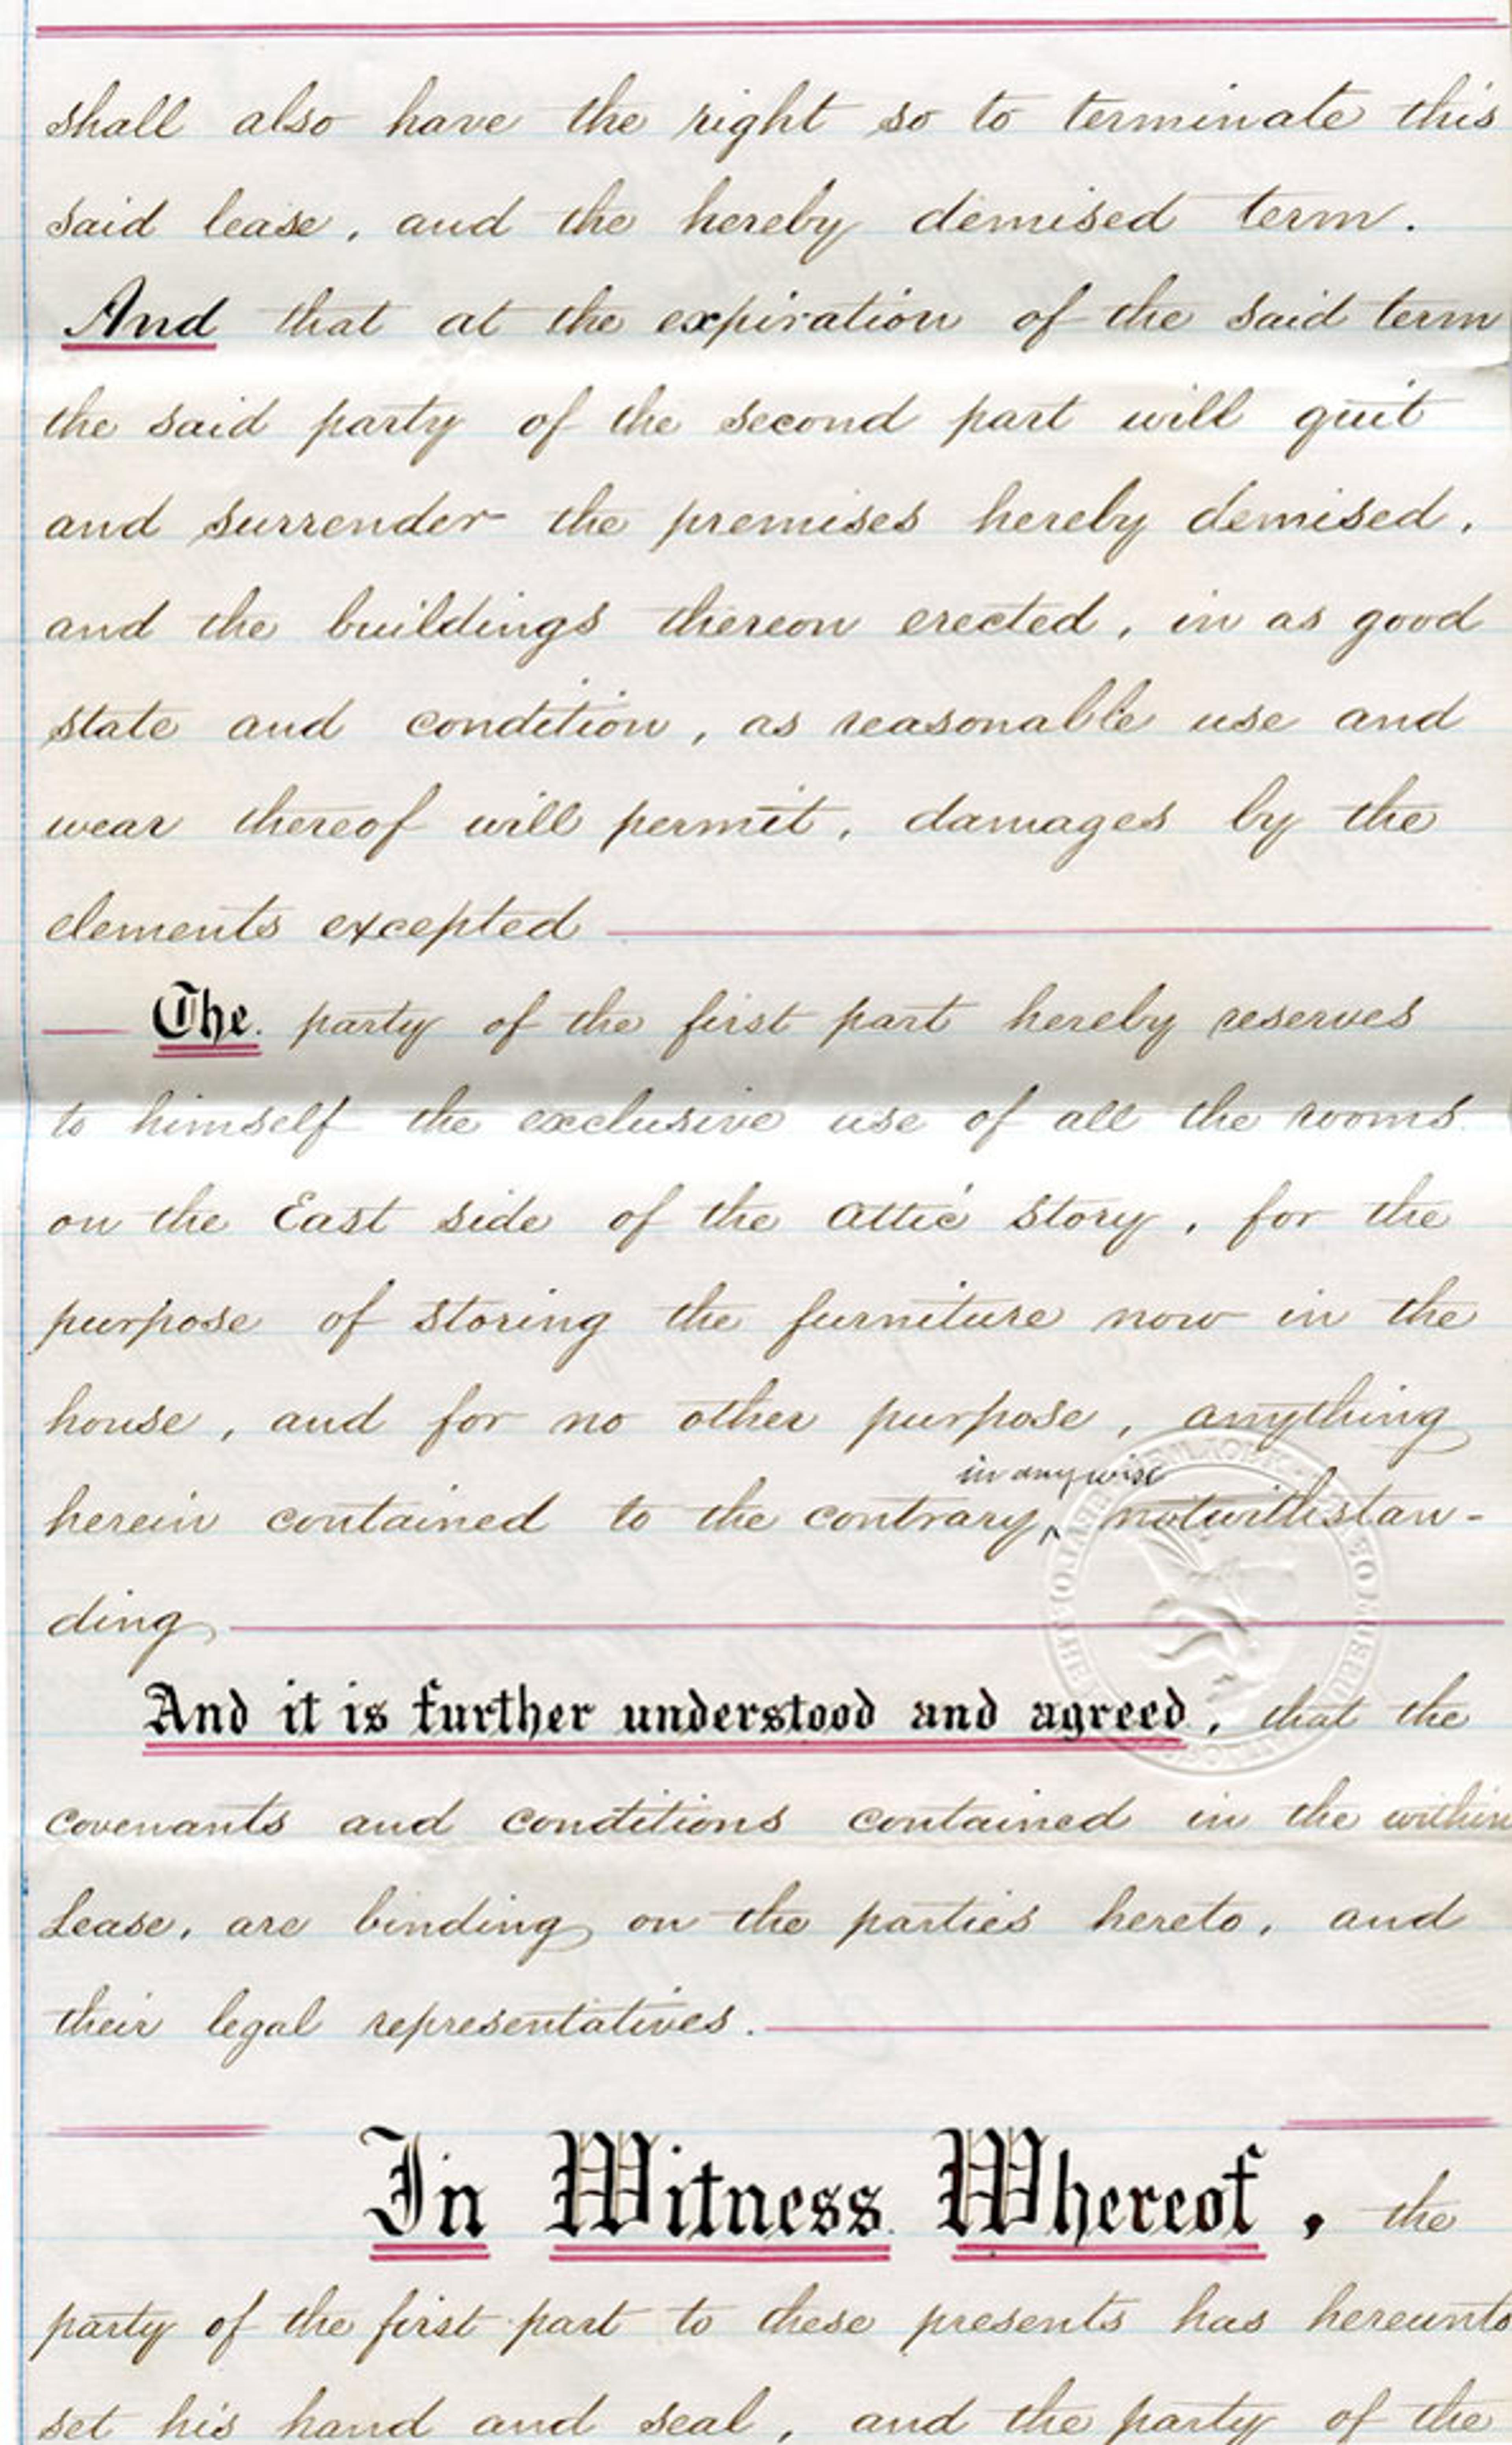 shall also have the right so to terminate this
said lease, and the hereby demised term.
And that at the expiration of the said term
the said party of the second part will quit
and surrender the premises hereby demised,
and the buildings thereon erected, in as good
state and condition, as reasonable use and
wear thereof will permit, damages by the
elements excepted
The. party of the first part hereby reserves
to himself the exclusive use of all the rooms
on the East side of the attic story, for the
purpose of storing the furniture now in the
house, and for no other purpose, anything
in any wise
herein contained to the contrary ^ notwithstan-
ding
And it is further understood and agreed, that the
covenants and conditions contained in the within
Lease, are binding on the parties hereto, and
their legal representatives.
In Witness Whereof, the
party of the first part to these presents has hereunto
set his hand and seal, and the party of the